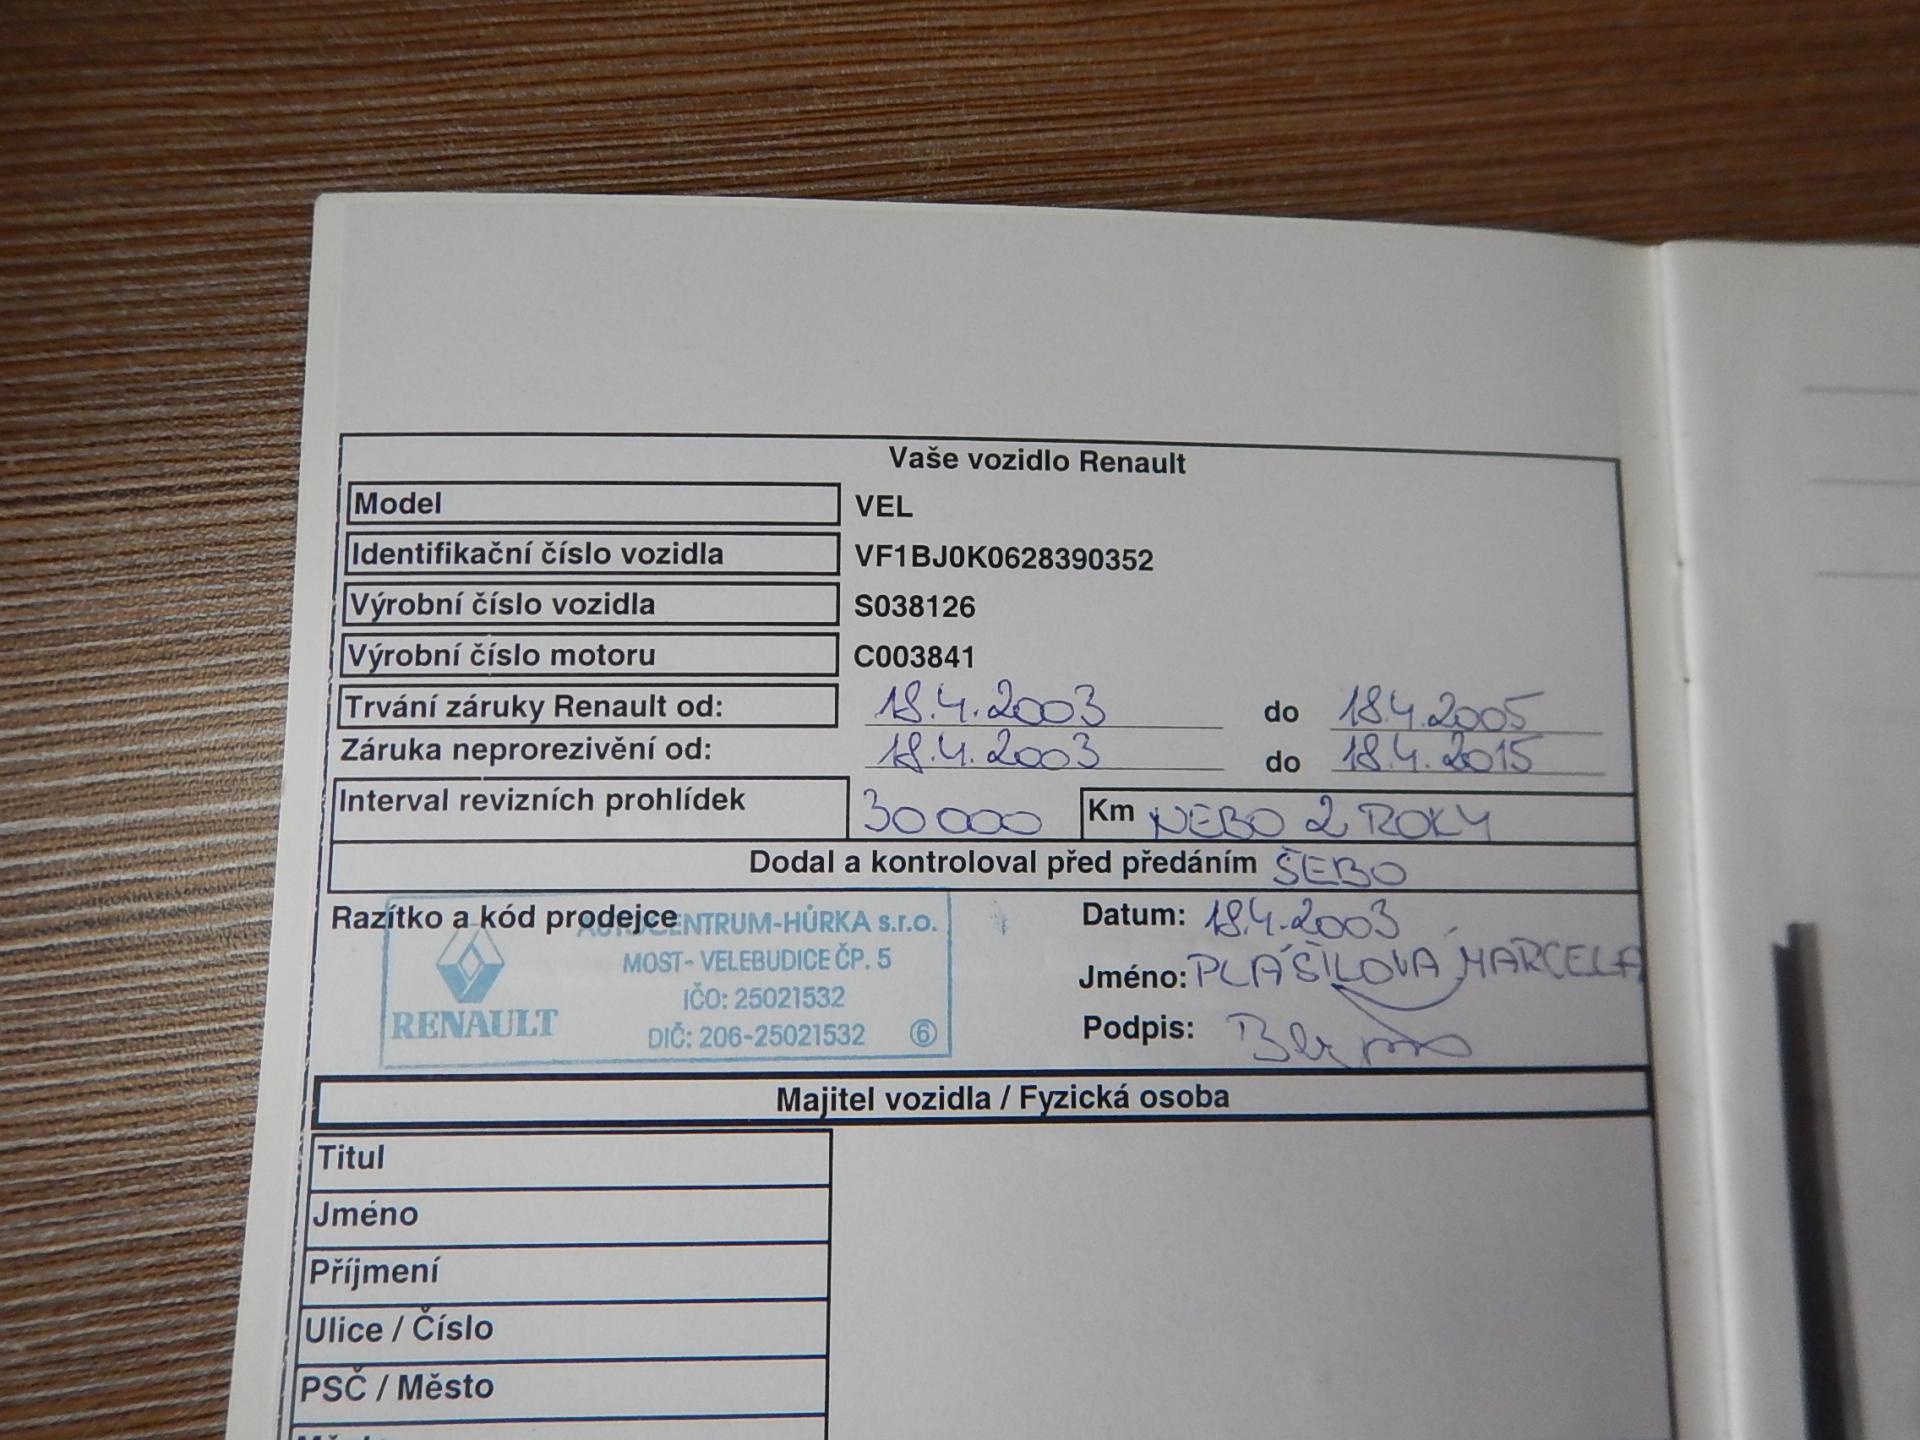 Vaše vozidlo Renault
Model VEL
Identifikační číslo vozidla VF1BJ0K0628390352
Výrobní číslo vozidla S038126
Výrobní číslo motoru C003841
Trvání záruky Renault od: 18.4.2003 do 18.4.2005
Záruka neprorezivění od: 18.4.2003 do 18.4.2015
Interval revizních prohlídek 30000 Km NEBO 2 ROKY
Dodal a kontroloval před předáním ŠEBO
Razítko a kód prodejce
AUTOCENTRUM-HŮRKA s.r.o.
MOST- VELEBUDICE ČP. 5
IČO: 25021532
RENAULT
DIČ: 206-25021532 6
Datum: 18.4.2003
Jméno: PLÁŠILOVÁ MARCELA
Podpis:
Majitel vozidla / Fyzická osoba
Titul
Jméno
Příjmení
Ulice / Číslo
PSČ / Město